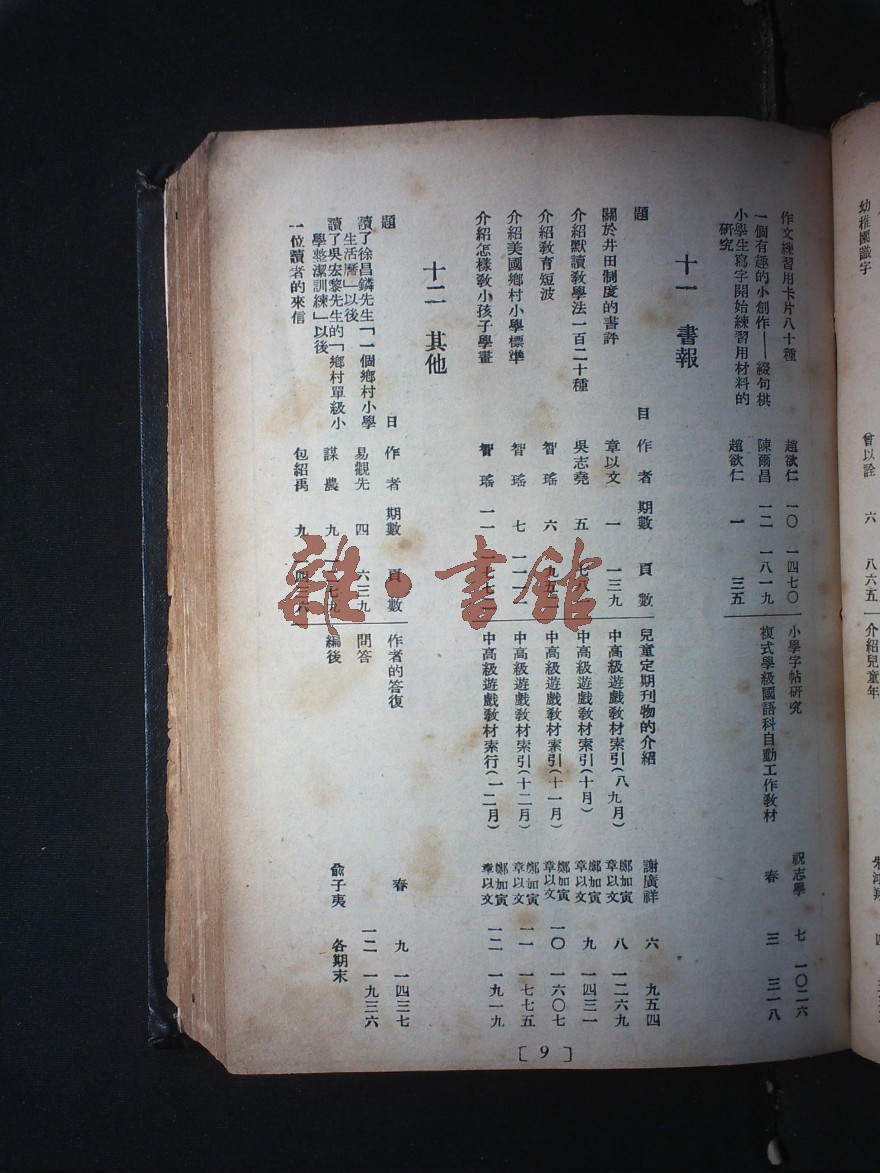 幼稚園識字 曾以詮 六 八六五
介紹兒童年
作文練習用卡片八十種 趙欲仁 一〇 一四七〇
一個有趣的小創作——綴句棋 陳爾昌 一二 一八一九
小學生寫字開始練習用材料的
研究 趙欲仁 一 三五
小學字帖研究 祝志學 七 一〇二六
複式學級國語科自動工作教材 春 三 三一八
十一 書報
題 目 作者 期數 頁數
關於井田制度的書評 章以文 一 一三九
介紹默讀教學法一百二十種 吳志堯 五
介紹教育短波 智瑤 六
介紹美國鄉村小學標準 智瑤 七
介紹怎樣教小孩子學畫 智瑤 一一
兒童定期刊物的介紹 謝廣祥 六 九五四
中高級遊戲教材索引(八九月) 鄭加寅 章以文 八 一二六九
中高級遊戲教材索引(十月) 鄭加寅 章以文 九 一四三一
中高級遊戲教材索引(十一月) 鄭加寅 章以文 一〇 一六〇七
中高級遊戲教材索引(十二月) 鄭加寅 章以文 一一 一七七五
中高級遊戲教材索行(一二月) 鄭加寅 章以文 一二 一九一九
十二 其他
題 目 作者 期數 頁數
讀了徐昌鏻先生「一個鄉村小學
生活曆」以後 易觀先 四 六三九
讀了吳宏黎先生的「鄉村單級小
學整潔訓練」以後 謀農 九
一位讀者的來信 包紹禹 九
作者的答復 春 九 一四三七
問答 一二 一九三六
編後 俞子夷 各期末
[9]
雜·書館